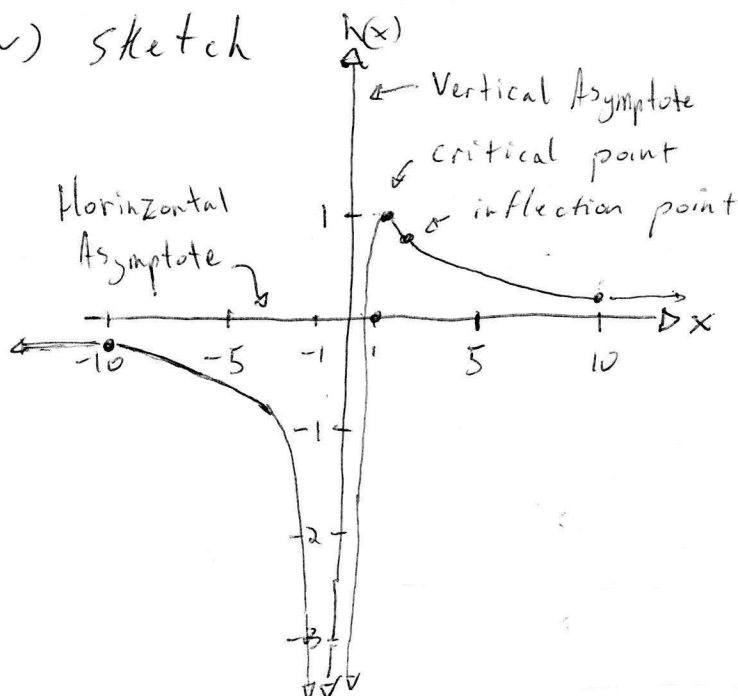 v) sketch
h(x)
Vertical Asymptote
critical point
inflection point
Horinzontal
Asymptote
1
x
-10
-5
-1
1
5
10
-1
-2
-3